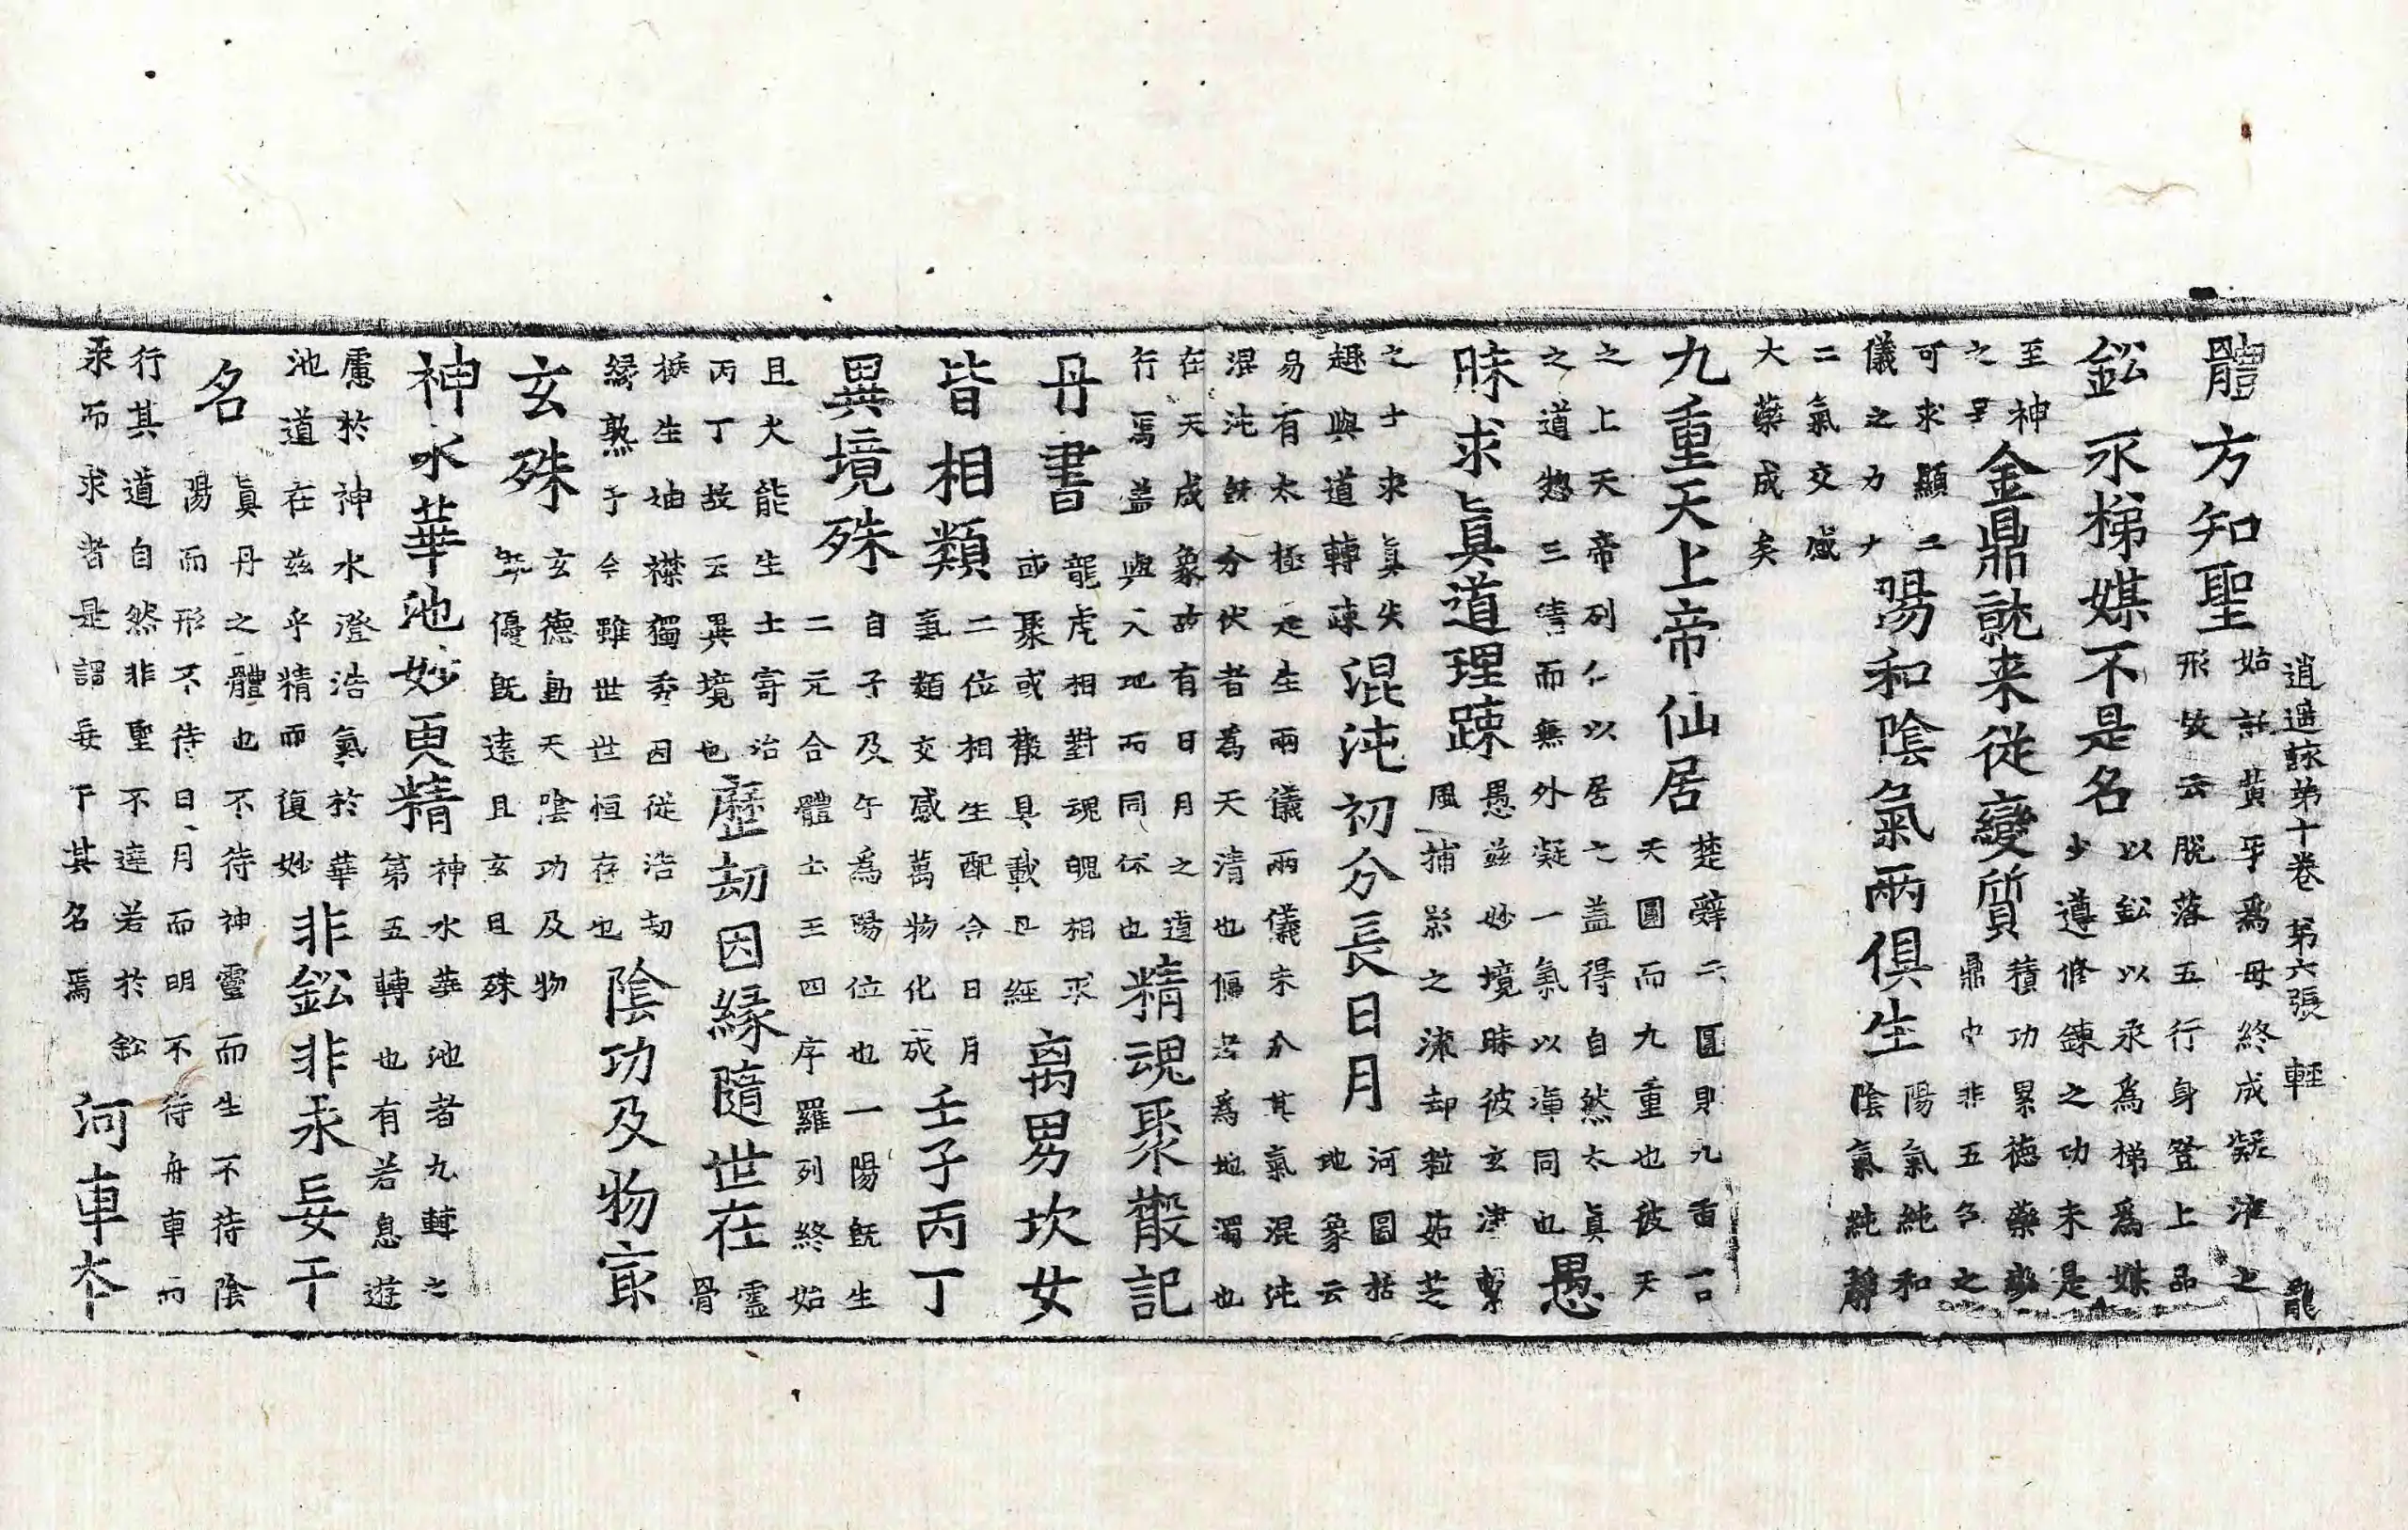 逍遙詠第十卷 第六張 輕 龍
體方知聖
始託黃牙爲母終成凝濟之
形故云脫落五行身登上品
鈆汞梯媒不是名
以鈆以汞爲梯爲媒
少遵修鍊之功未是
至神
之
金鼎就来從變質
積功累德藥變
鼎中非五名之
可求顯二
儀之力
陽和陰氣兩俱生
陽氣純和
陰氣純靜
二氣交感
大藥成矣
九重天上帝仙居
楚辭云圓則九重言
天圓而九重也彼天
之上天帝列仁以居之盖得自然太眞
之道惣三清而無外凝一氣以渾同也
愚
昧求眞道理踈
愚兹妙境昧彼玄津繫
風捕影之流却粒茹芝
之士求眞失
趣與道轉疎
混沌初分長日月
河圖括
地象云
易有太極是生兩儀兩儀未分其氣混沌
混沌旣分伏者爲天清也偃者爲地濁也
在天成象故有日月之道
行焉盖與人地而同休也
精魂聚散記
丹書
龍虎相對魂魄相求
或聚或散具載丹經
离男坎女
皆相類
二位相生配合日月
氣類交感萬物化成
壬子丙丁
異境殊
自子及午爲陽位也一陽旣生
二元合體土王四序羅列終始
且火能生土寄治
丙丁故云異境也
歷劫因緣隨世在
靈
骨
挺生襟獨秀因從浩劫
緣熟于今雖世世恒存也
陰功及物寂
玄殊
玄德動天陰功及物
優旣遠且玄且殊
神水華池妙更精
神水華池者九轉之
第五轉也有若息遊
慮於神水澄浩氣於華
池道在兹乎精而復妙
非鈆非汞妄干
名
眞丹之體也不待神靈而生不待陰
陽而形不待日月而明不待舟車而
行其道自然非聖不達若於鈆
汞而求者是謂妄干其名焉
河車本